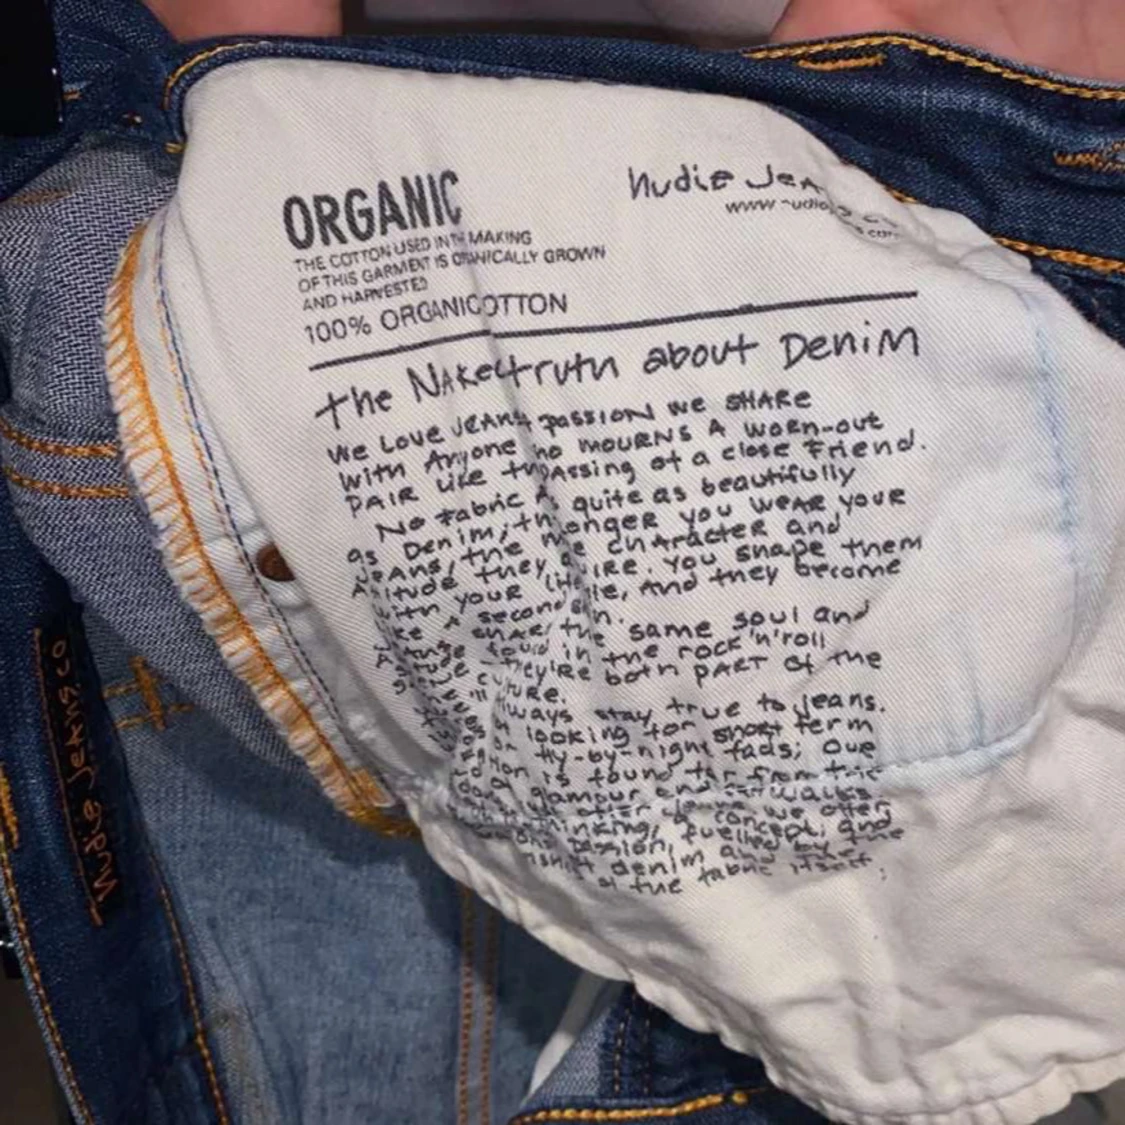 ORGANIC
THE COTTON USED IN THE MAKING
OF THIS GARMENT IS ORGANICALLY GROWN
AND HARVESTED
100% ORGANIC COTTON
Nudie Jeans
www
The Naked truth about Denim
We LOVE JEANS passion we SHARE
with Anyone who MOURNS A WORN-out
PAIR like the passing of a close Friend.
No fabric quite as beautifully
as Denim, the longer you WEAR your
JEANS, the more character and
attitude they acquire. You shape them
with your lifestyle, And they become
like A second skin.
share the same soul and
attitude found in the rock'n'roll
they're both PART of the
culture.
always stay true to jeans.
looking for short term
or fly-by-night fads; our
is found far from the
glamour and catwalks
concept; and
passion, fuelled by the
denim and by the
of the fabric itself;
Nudie Jeans.co